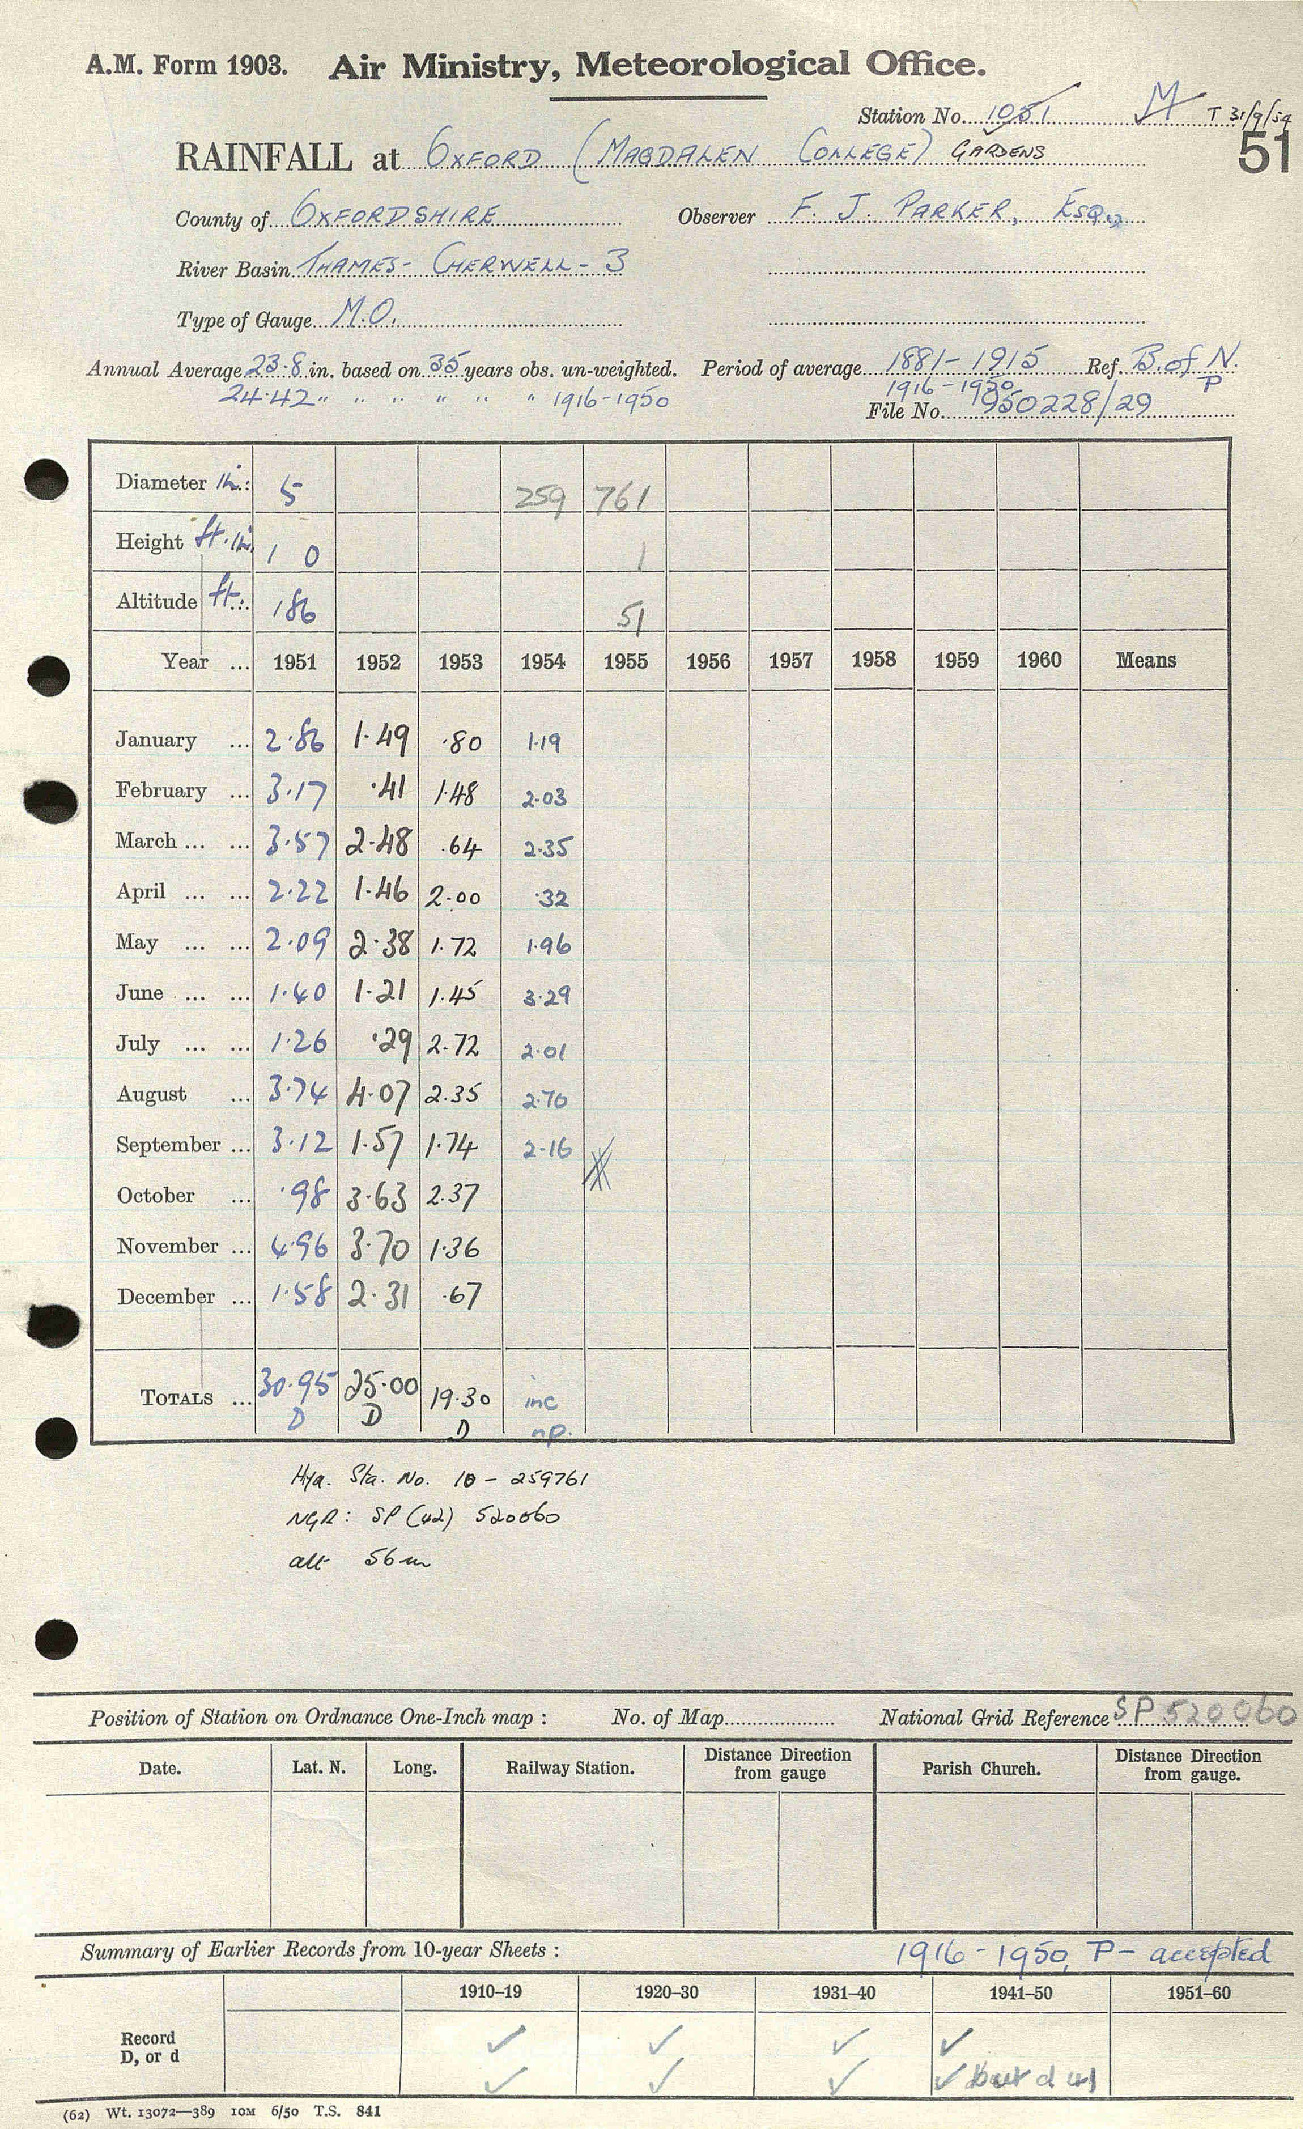 A.M. Form 1903. Air Ministry, Meteorological Office.
Station No. 1051 M T 31/9/54
RAINFALL at OXFORD (MAGDALEN COLLEGE) GARDENS 51
County of OXFORDSHIRE Observer F. J. PARKER, ESQ.,
River Basin THAMES - CHERWELL - 3
Type of Gauge M.O.
Annual Average 23.8 in. based on 35 years obs. un-weighted. Period of average 1881-1915 Ref. B. of N.
24.42 " " " " " " 1916-1950 1916-1950 P
File No. 950228/29
Diameter in.: 5 259 761
Height ft. in. 1 0 1
Altitude ft.: 186 51
Year ... 1951 1952 1953 1954 1955 1956 1957 1958 1959 1960 Means
January ... 2.86 1.49 .80 1.19
February ... 3.17 .41 1.48 2.03
March ... ... 3.57 2.48 .64 2.35
April ... ... 2.22 1.46 2.00 .32
May ... ... 2.09 2.38 1.72 1.96
June ... ... 1.40 1.21 1.45 3.29
July ... ... 1.26 .29 2.72 2.01
August ... 3.74 4.07 2.35 2.70
September ... 3.12 1.57 1.74 2.16
October ... .98 3.63 2.37
November ... 4.96 3.70 1.36
December ... 1.58 2.31 .67
TOTALS ... 30.95 25.00 19.30 inc
D D D np.
Hya. Sta. No. 10 - 259761
NGR: SP (42) 520060
alt 56 m
Position of Station on Ordnance One-Inch map : No. of Map National Grid Reference SP 520060
Date. Lat. N. Long. Railway Station. Distance Direction from gauge Parish Church. Distance Direction from gauge.
Summary of Earlier Records from 10-year Sheets : 1916-1950, P- accepted
1910–19 1920–30 1931–40 1941–50 1951–60
Record ✓ ✓ ✓ ✓
D, or d ✓ ✓ ✓ ✓ but d
(62) Wt. 13072—389 10M 6/50 T.S. 841